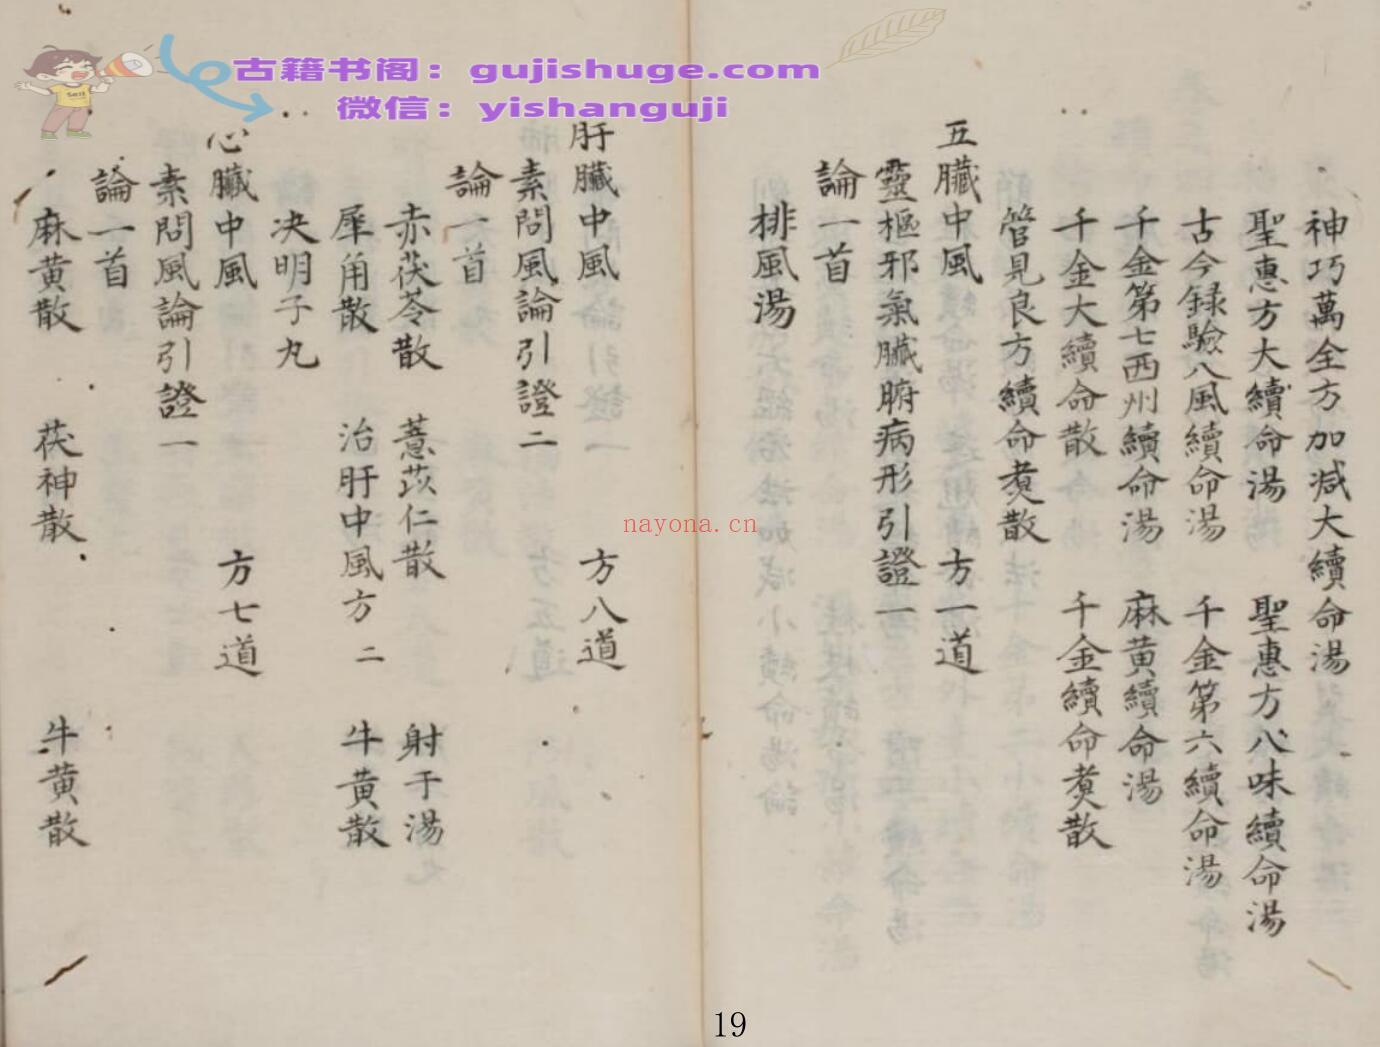 古籍书阁：gujishuge.com
微信：yishanguji
神巧萬全方加減大續命湯
聖惠方大續命湯 聖惠方八味續命湯
古今録驗八風續命湯 千金第六續命湯
千金第七西州續命湯 麻黄續命湯
千金大續命散 千金續命煑散
管見良方續命煑散
五臟中風 方一道
靈樞邪氣臟腑病形引證一
論一首
排風湯
肝臟中風 方八道
素問風論引證二
論一首
赤茯苓散 薏苡仁散 射干湯
犀角散 治肝中風方二 牛黄散
决明子丸
心臟中風 方七道
素問風論引證一
論一首
麻黄散 茯神散 牛黄散
nayona.cn
19